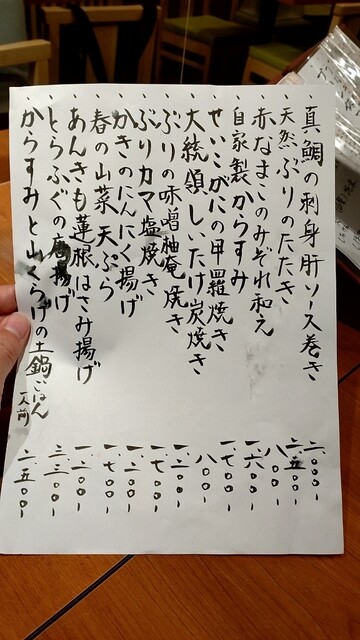 、真鯛の刺身肝ソース巻き 二.〇〇〇-
、天然ぶりのたたき 二.五〇〇-
、赤なまこのみぞれ和え 八〇〇-
、自家製からすみ 一.六〇〇-
、せいこがにの甲羅焼き 一.七〇〇-
、大統領しいたけ炭焼き 八〇〇-
、ぶりの味噌柚庵焼き 一.二〇〇-
、ぶりカマ塩焼き 一.七〇〇-
、かきのにんにく揚げ 一.二〇〇-
、春の山菜天ぷら 一.七〇〇-
、あんきも蓮根はさみ揚げ 一.二〇〇-
、とらふぐの唐揚げ 三.三〇〇-
、からすみと山くらげの土鍋ごはん 二.五〇〇-